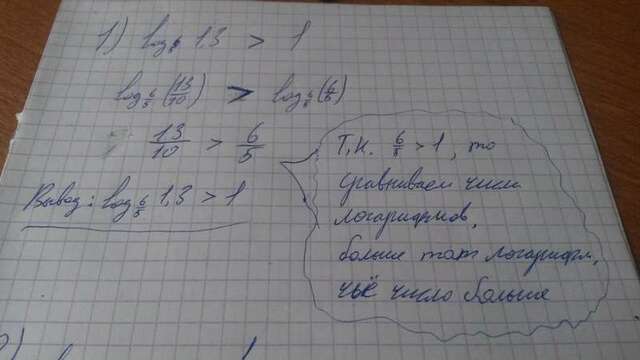 1) log_{6/5} 1,3 > 1
log_{6/5} (13/10) > log_{6/5} (6/5)
13/10 > 6/5
Вывод: log_{6/5} 1,3 > 1
Т,к. 6/5 > 1, то
сравниваем числа
логарифмов,
больше тот логарифм,
чьё число больше
2)